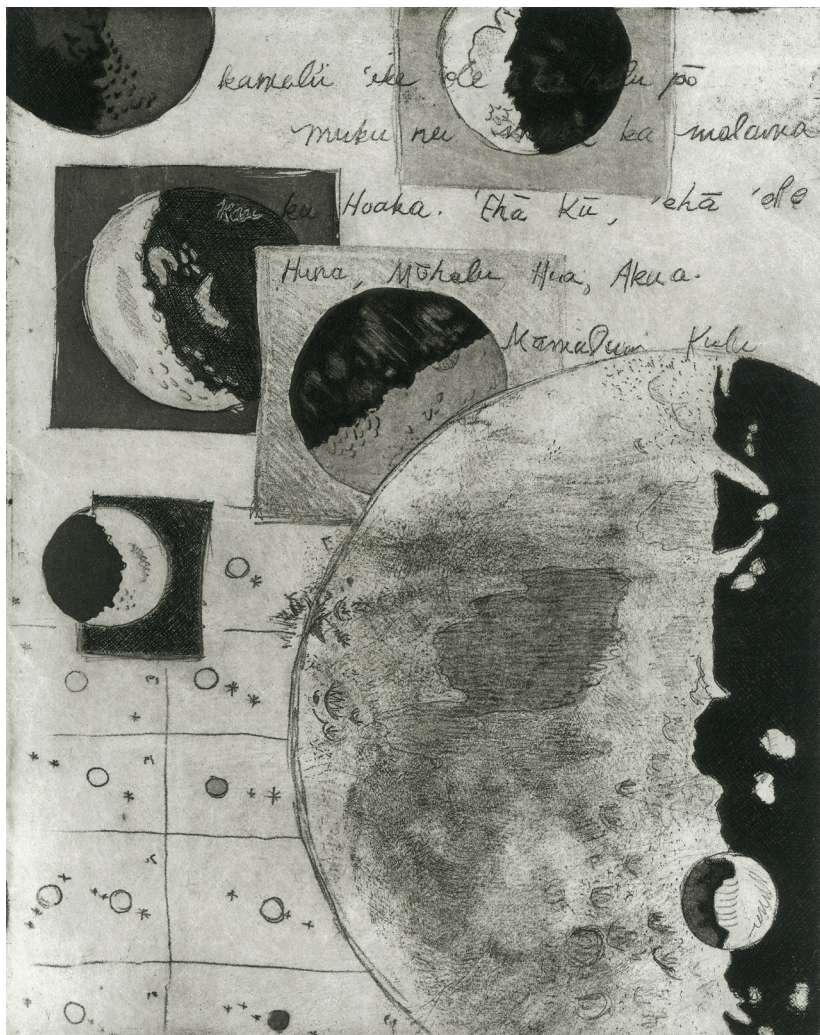 kamalii 'ike 'ole i ka helu pō
muku nei ka malama
Kau ka Hoaka. 'Ehā Kū, 'ehā 'ole
Huna, Mōhalu Hua, Akua.
Kulu